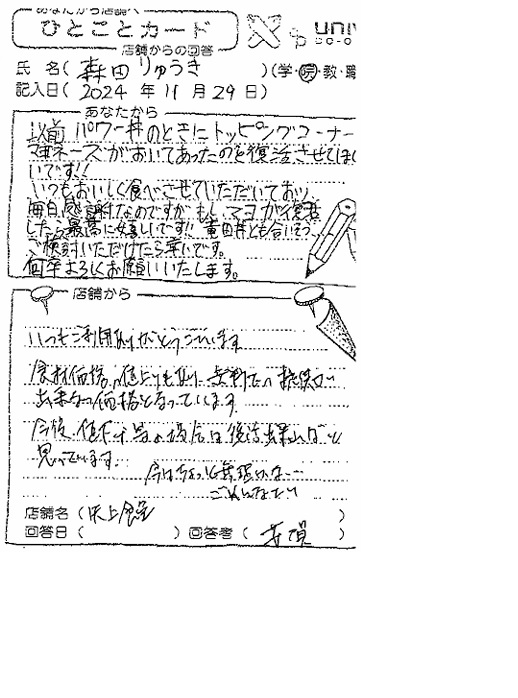 あなたから店舗へ
ひとことカード
店舗からの回答
univ
co-o
氏 名( 森田りゅうき )(学・院・教・職
記入日( 2024 年 11 月 29 日)
あなたから
以前 パワー丼のときにトッピングコーナー
マヨネーズがおいてあったのを復活させてほし
いです!!
いつもおいしく食べさせていただいており、
毎日感謝なのですが もし マヨが復活
したら最高に嬉しいです!! 竜田丼とも合いそう
ご検討いただけたら幸いです。
何卒よろしくお願いいたします。
店舗から
いつもご利用ありがとうございます
食材価格の値上りもあり 無料での提供は
出来ない価格となっています
今後、値下り等の場合は復活出来ればと
思っています.
今はちょっと無理かな…
ごめんなさい
店舗名( 食堂 )
回答日( ) 回答者( )